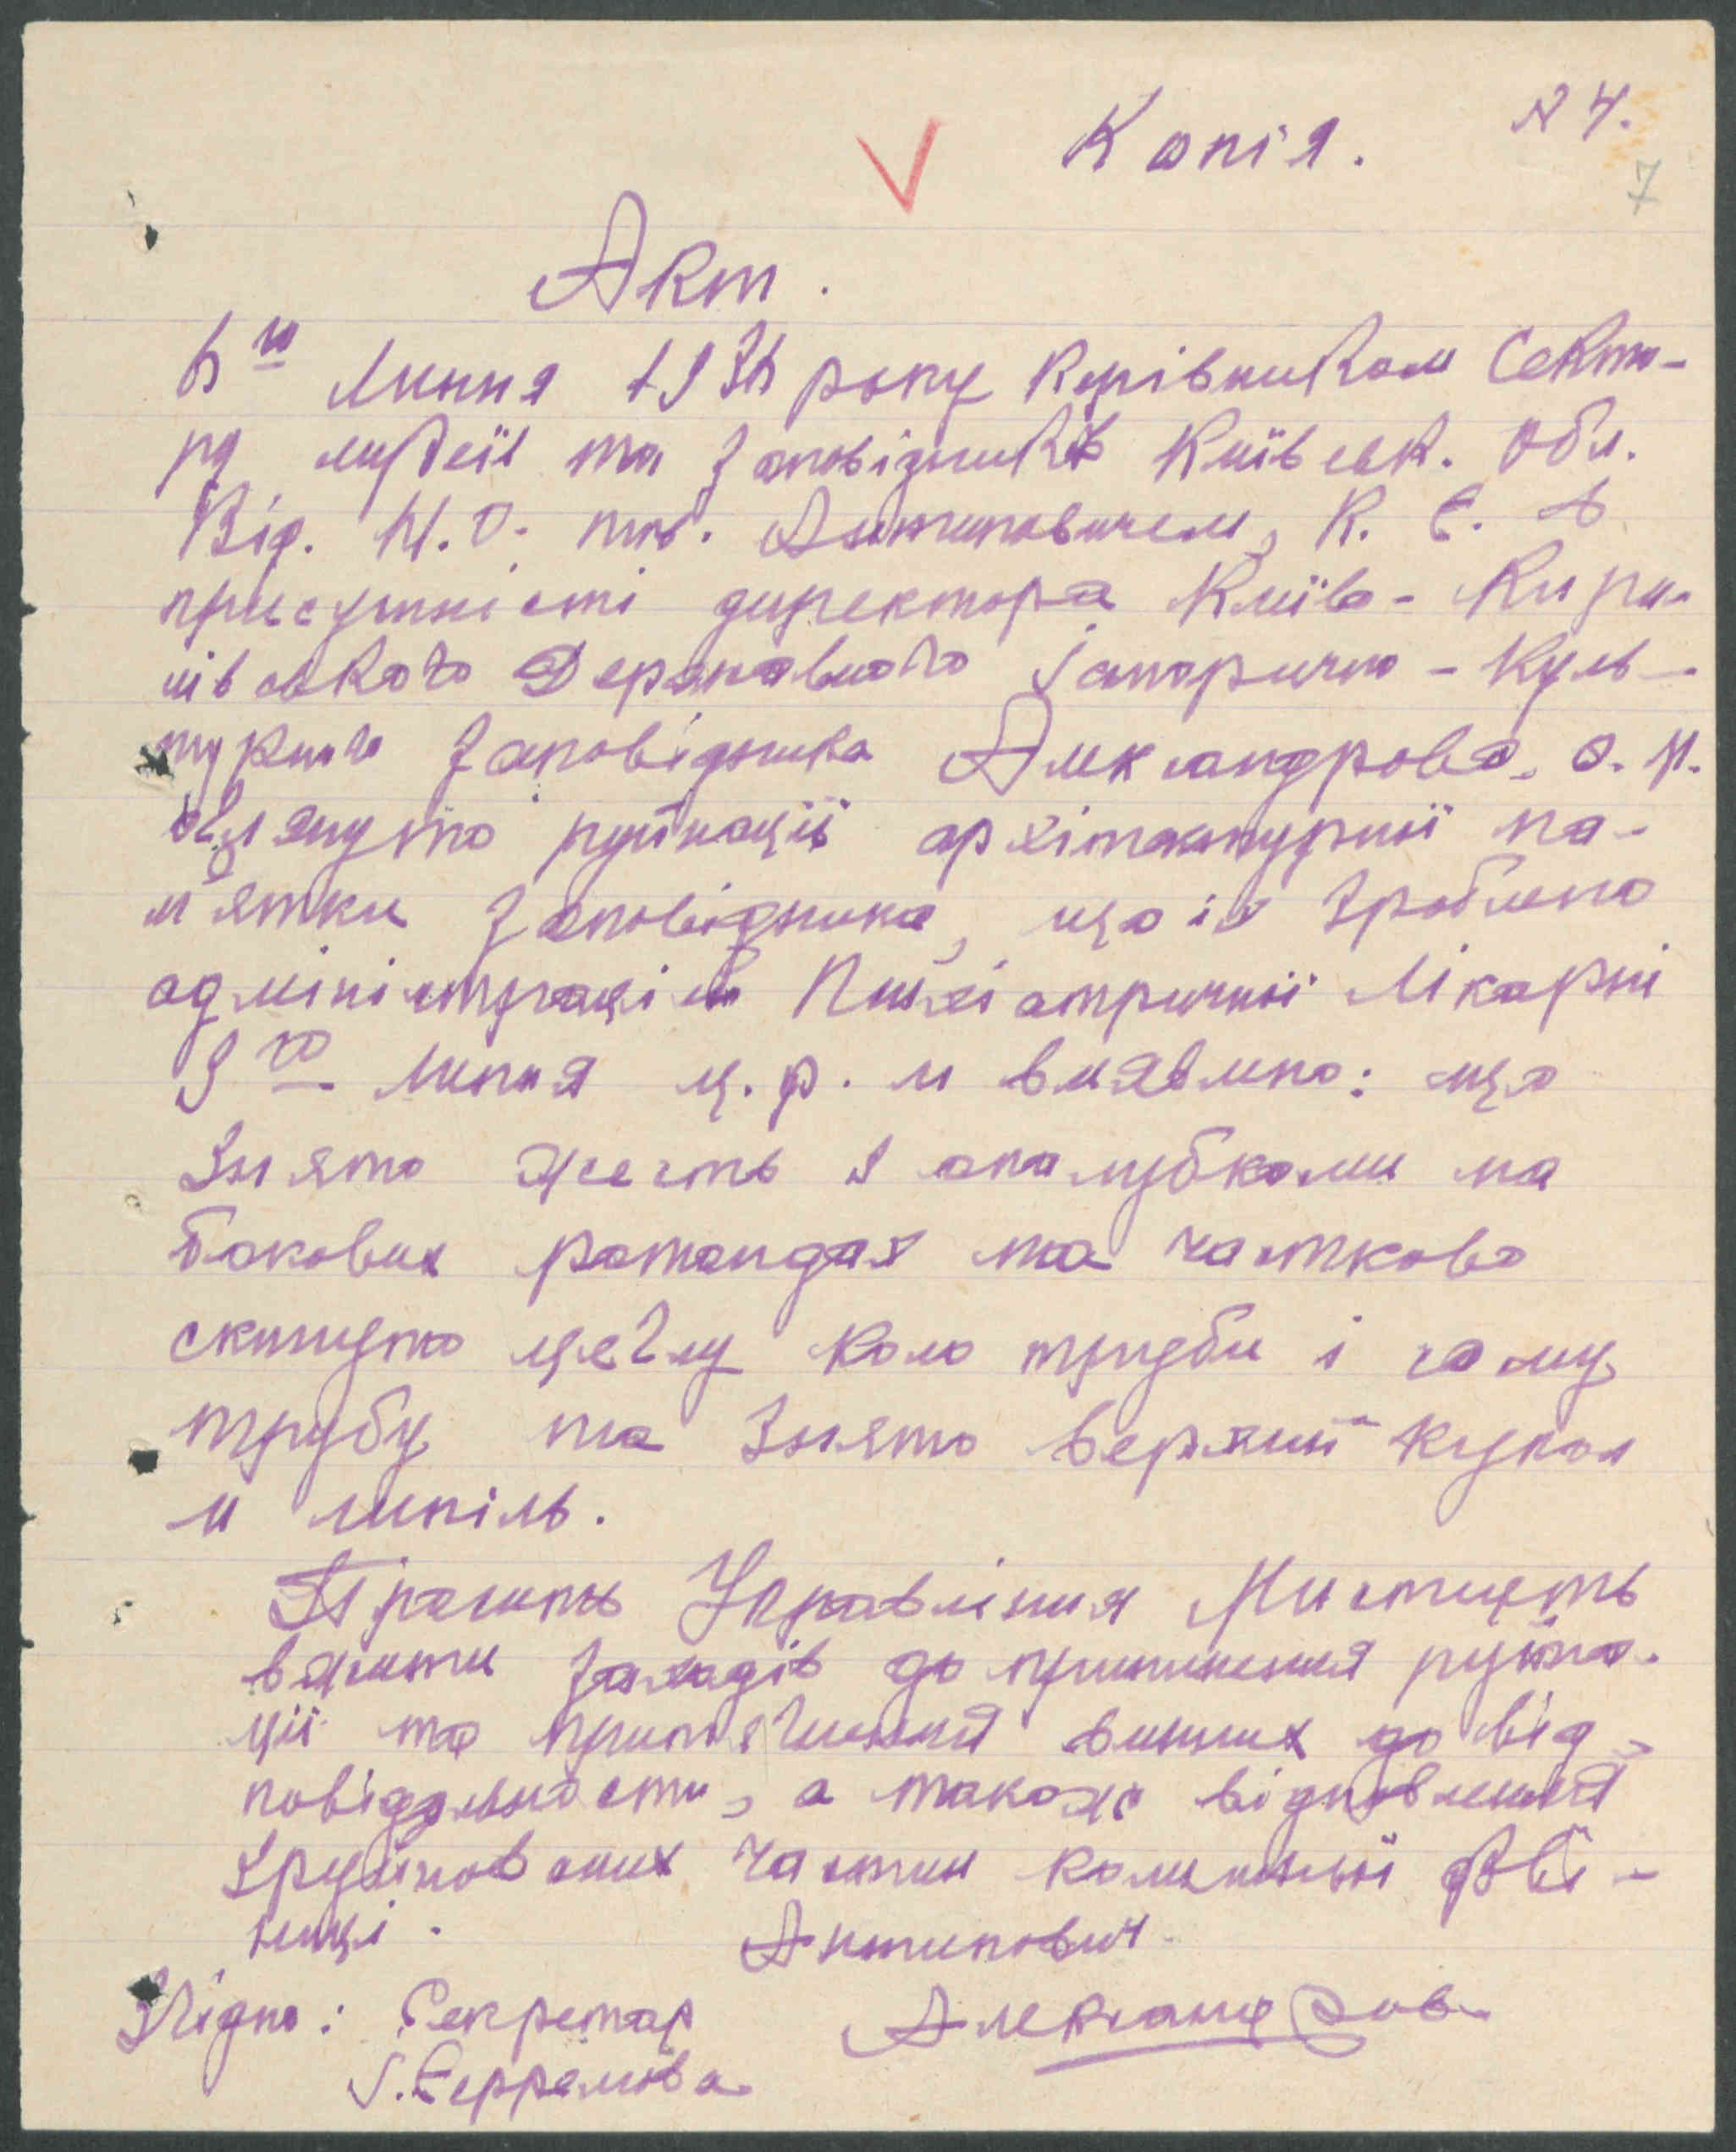 Копія. № 4.
7
Акт.
Липня року Керівником Секто-
ру музеїв та Заповідників Київськ. Обл.
Від. Н.О. тов. Антиповичем, К. Є. в
присутності директора Києво-Кири-
лівського Державного Історично-Куль-
турного Заповідника Александрова, О. П.
оглянуто руйнації архітектурної па-
м'ятки Заповідника, що їх зроблено
адміністрацією Психіатричної Лікарні
Липня ц.р. и виявлено: що
Знято жесть з опалубками на
бокових ротондах та частково
скинуто цеглу коло труби і саму
трубу та Знято верхній купол
и шпіль.
Просить Управління Мистецтв
вжити Заходів до припинення руйна-
ції та притягнення винних до від-
повідальности, а також відновлення
Зруйнованих частин колишньої дзві-
ниці.
Антипович
Згідно: Секретар Александров